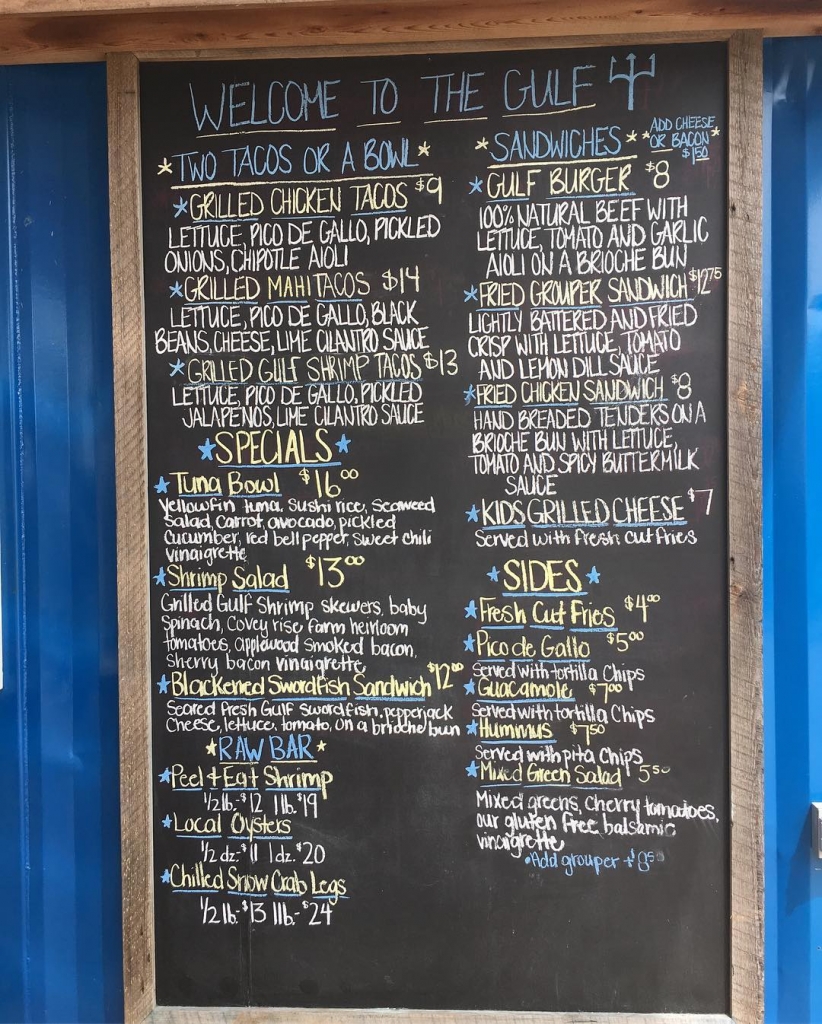 WELCOME TO THE GULF
*TWO TACOS OR A BOWL*
*GRILLED CHICKEN TACOS $9
LETTUCE, PICO DE GALLO, PICKLED
ONIONS, CHIPOTLE AIOLI
*GRILLED MAHI TACOS $14
LETTUCE, PICO DE GALLO, BLACK
BEANS, CHEESE, LIME CILANTRO SAUCE
*GRILLED GULF SHRIMP TACOS $13
LETTUCE, PICO DE GALLO, PICKLED
JALAPENOS, LIME CILANTRO SAUCE
*SPECIALS*
*Tuna Bowl $16.00
Yellowfin tuna, Sushi rice, Seaweed
Salad, carrot, avocado, pickled
Cucumber, red bell pepper, sweet chili
vinaigrette
*Shrimp Salad $13.00
Grilled Gulf Shrimp skewers, baby
Spinach, Covey rise farm heirloom
tomatoes, applewood smoked bacon,
Sherry bacon vinaigrette
*Blackened Swordfish Sandwich $12.00
Seared fresh Gulf Swordfish, pepperjack
Cheese, lettuce, tomato, on a brioche bun
*RAW BAR*
*Peel + Eat Shrimp
1/2 lb.-$12 1 lb.$19
*Local Oysters
1/2 dz.-$11 1dz.$20
*Chilled Snow Crab Legs
1/2 lb.-$13 1lb.-$24
*SANDWICHES*
*ADD CHEESE
OR BACON*
$1.50
*GULF BURGER $8
100% NATURAL BEEF WITH
LETTUCE, TOMATO AND GARLIC
AIOLI ON A BRIOCHE BUN
*FRIED GROUPER SANDWICH $12.75
LIGHTLY BATTERED AND FRIED
CRISP WITH LETTUCE, TOMATO
AND LEMON DILL SAUCE
*FRIED CHICKEN SANDWICH $8
HAND BREADED TENDERS ON A
BRIOCHE BUN WITH LETTUCE,
TOMATO AND SPICY BUTTERMILK
SAUCE
*KIDS GRILLED CHEESE $7
Served with fresh cut fries
*SIDES*
*Fresh Cut Fries $4.00
*Pico de Gallo $5.00
Served with tortilla Chips
*Guacamole $7.00
Served with tortilla Chips
*Hummus $7.50
Served with pita Chips
*Mixed Green Salad 5.50
Mixed greens, cherry tomatoes,
our gluten free balsamic
vinaigrette
•Add grouper +$8.50